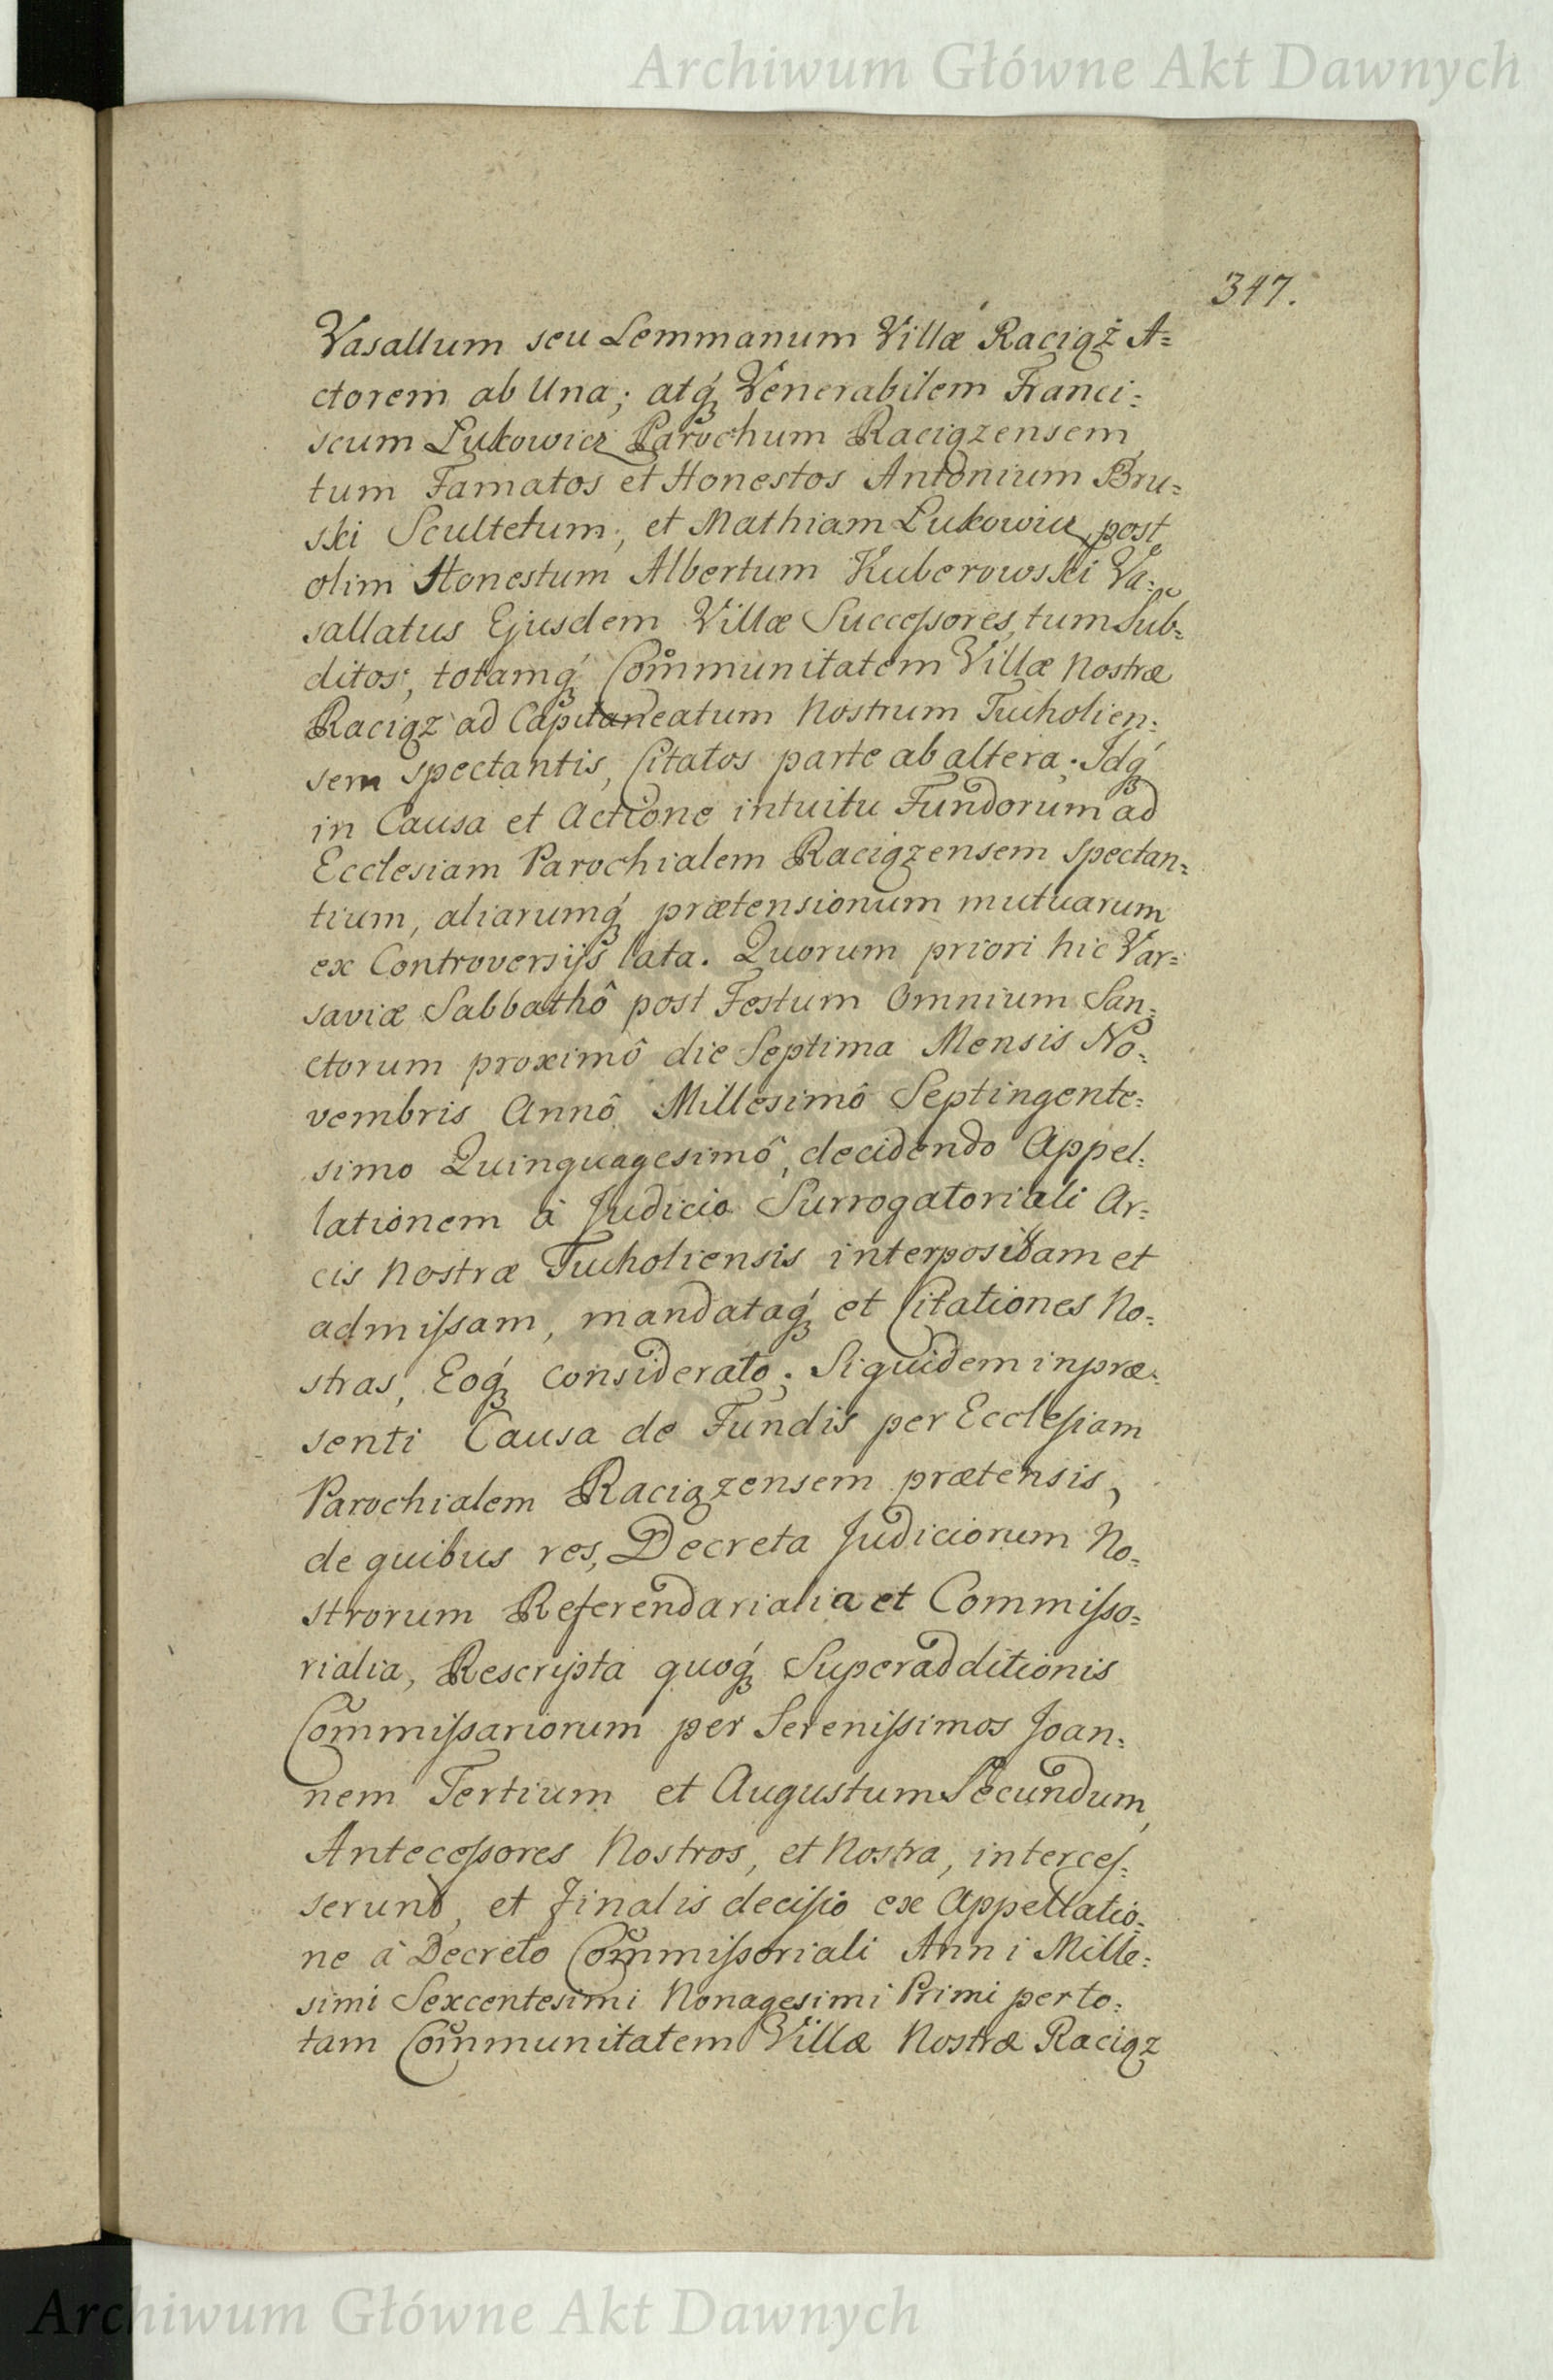 Archiwum Główne Akt Dawnych
347.
Vasallum seu Lemmanum Villæ Raciąż A=
ctorem ab Una; atq́ꝫ Venerabilem Franci=
scum Łukowicz Parochum Raciązensem
tum Famatos et Honestos Antonium Bru=
ski Scultetum, et Mathiam Łukowicz post
olim Honestum Albertum Kuberowski Va=
sallatus Ejusdem Villæ Succeſsores, tum Sub=
ditos, totamq́ꝫ Communitatem Villæ Nostræ
Raciąz ad Capitaneatum Nostrum Tucholien=
sem spectantis, Citatos parte ab altera; Idq́ꝫ
in Causa et Actione intuitu Fundorum ad
Ecclesiam Parochialem Raciązensem spectan=
tium, aliarumq́ꝫ prætensionum mutuarum
ex Controversijs lata. Quorum priori hic Var=
saviæ Sabbathô post Festum Omnium San=
ctorum proximô die Septima Mensis No=
vembris Annô Millesimô Septingente=
simo Quinquagesimô, decidendo Appel=
lationem à Judicio Surrogatoriali Ar=
cis Nostræ Tucholiensis interpositam et
admiſsam, mandataq́ꝫ et Citationes No=
stras, Eoq́ꝫ considerato; Siquidem in præ=
senti Causa de Fundis per Eccleſiam
Parochialem Raciązensem prætensis,
de quibus res, Decreta Judiciorum No=
strorum Referendarialia et Commiſso=
rialia, Rescripta quoq́ꝫ Superadditionis
Commiſsariorum per Sereniſsimos Joan=
nem Tertium et Augustum Secundum,
Anteceſsores Nostros, et Nostra, interceſ=
serunt, et finalis deciſio ex Appellatio=
ne à Decreto Commiſsoriali Anni Mille=
simi Sexcentesimi Nonagesimi Primi per to=
tam Communitatem Villæ Nostræ Raciąz
Archiwum Główne Akt Dawnych